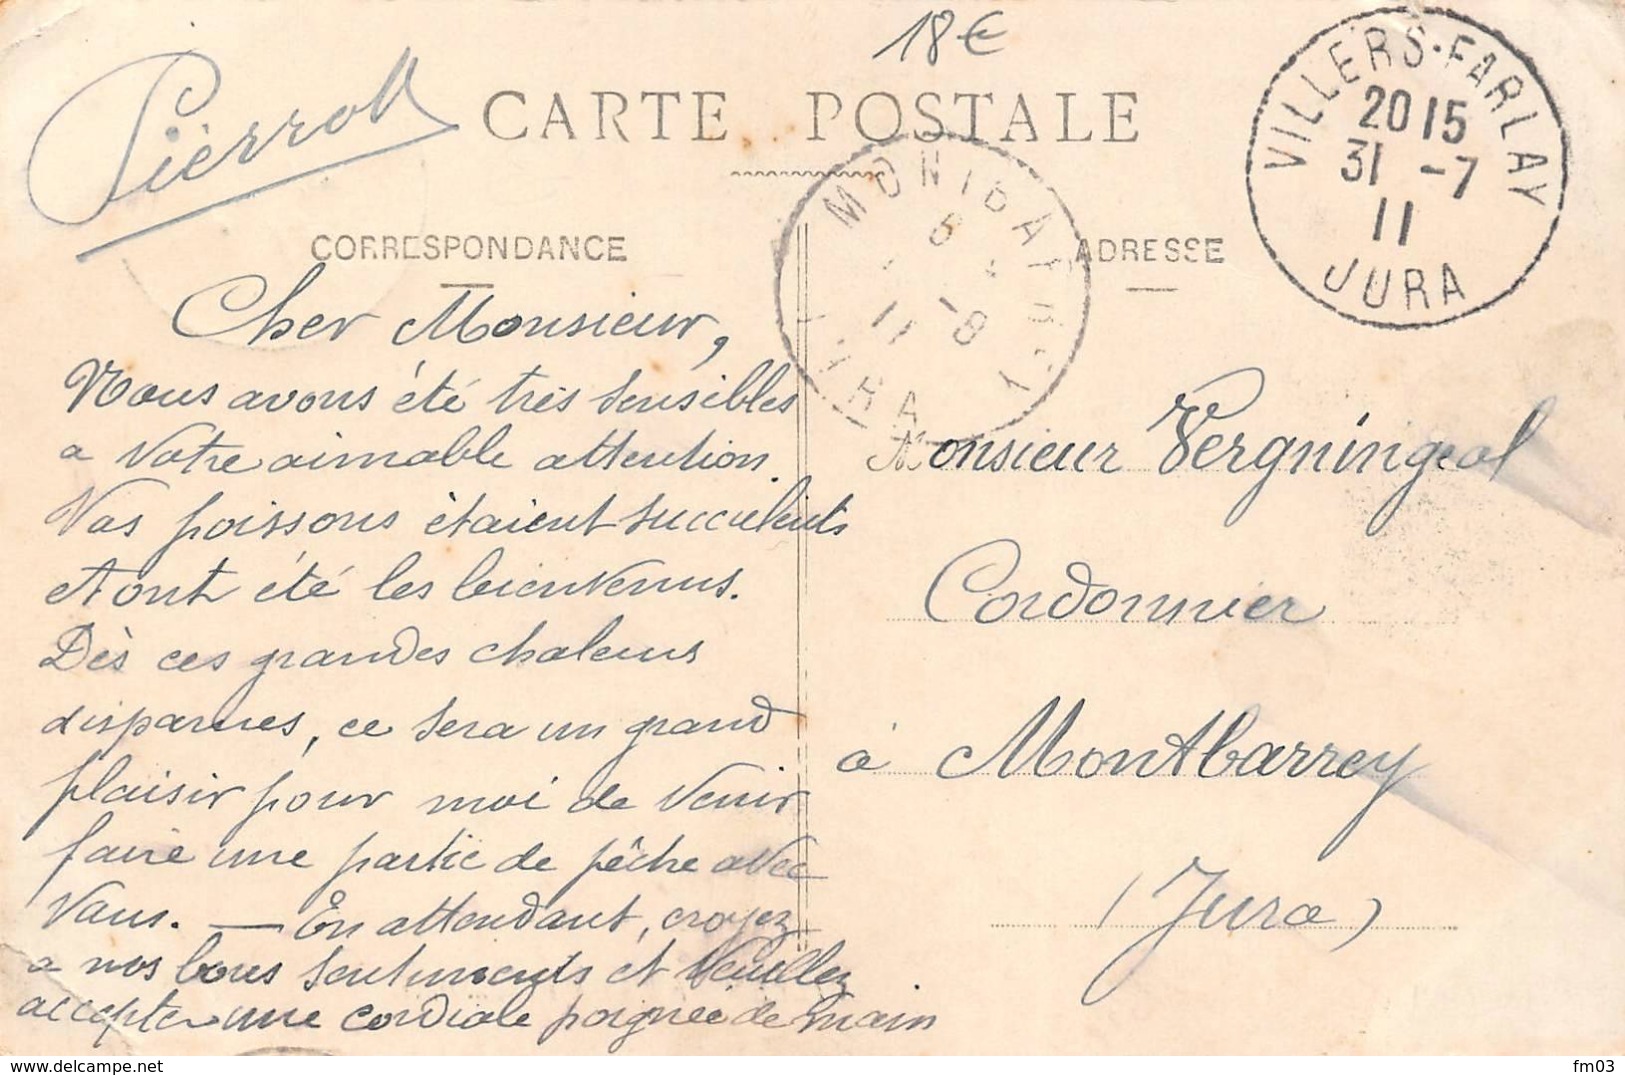 18€
Pierrot
CARTE POSTALE
VILLERS-FARLAY
20 15
31 -7
11
JURA
MONTBARREY
-8
11
JURA
CORRESPONDANCE
ADRESSE
Cher Monsieur,
Nous avons été très sensibles
a votre aimable attention.
Vos poissons étaient succulents
et ont été les bienvenus.
Dès ces grandes chaleurs
disparues, ce sera un grand
plaisir pour moi de venir
faire une partie de pêche avec
vous. — En attendant, croyez
a nos bons sentiments et veuillez
accepter une cordiale poignée de main
Monsieur Vergningeol
Cordonnier
à Montbarrey
(Jura)
fm03